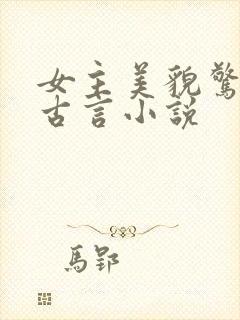 女主美貌驚
古言小説
馬郢